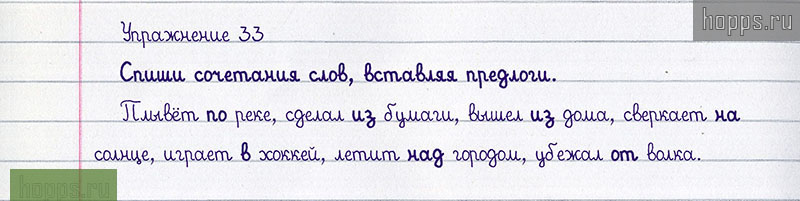 hopps.ru
Упражнение 33
Спиши сочетания слов, вставляя предлоги.
Плывёт по реке, сделал из бумаги, вышел из дома, сверкает на
солнце, играет в хоккей, летит над городом, убежал от волка.
hopps.ru